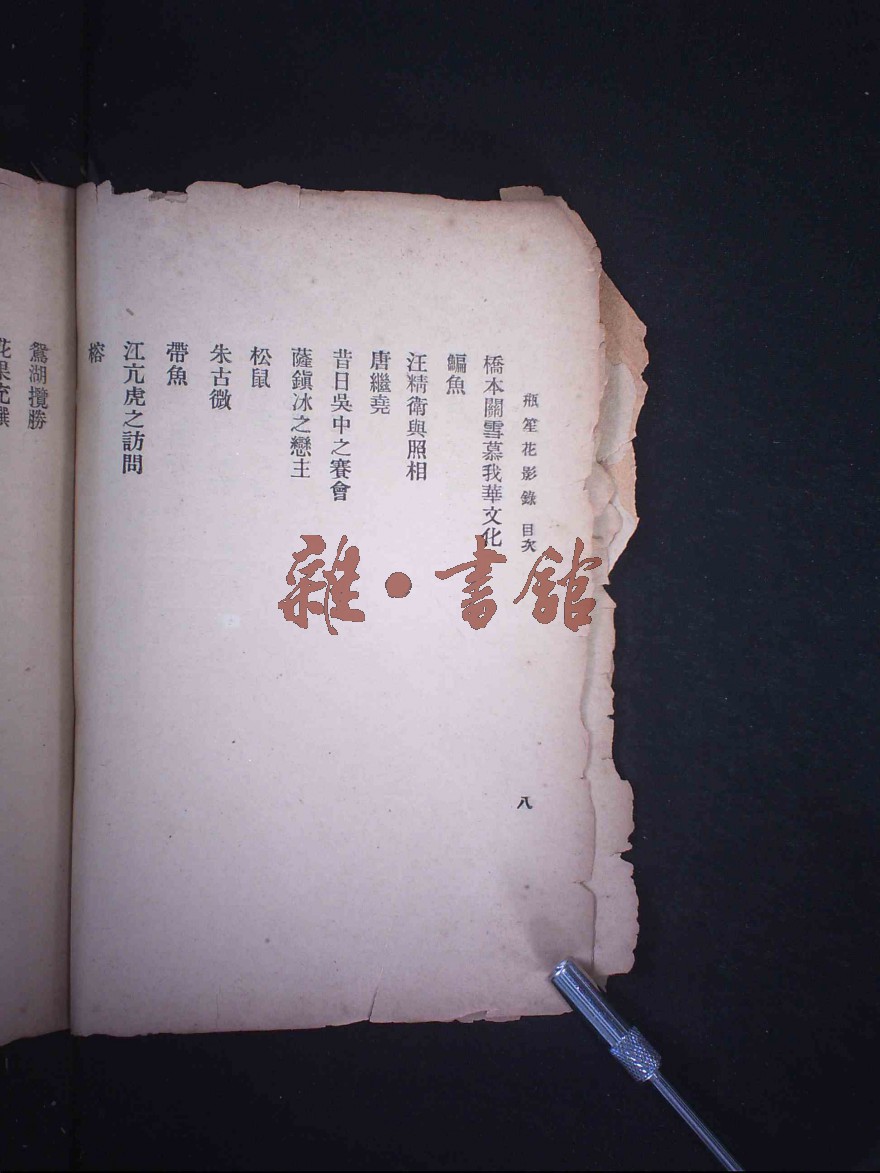 瓶笙花影錄 目次
八
橋本關雪慕我華文化
鯿魚
汪精衛與照相
唐繼堯
昔日吳中之賽會
薩鎮冰之戀主
松鼠
朱古微
帶魚
江亢虎之訪問
榕
鴛湖攬勝
花果充饌
雜·書舘